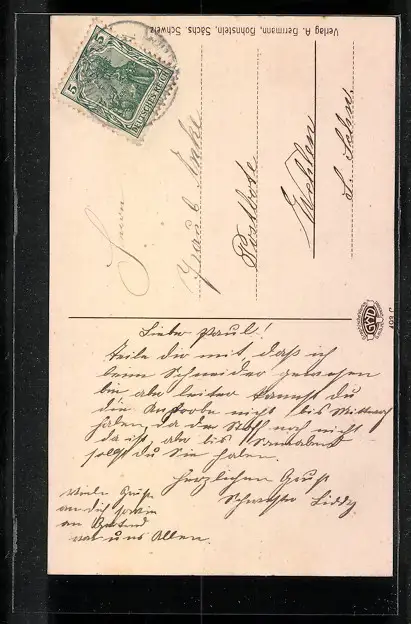 Verlag A. Germann, Hohnstein, Sächs. Schweiz
5 5
DEUTSCHES REICH
Herrn
Paul Enke
Postbote
i. Sachs.
Lieber Paul!
teile dir mit, daß ich
beim Schneider gewesen
bin aber leider kannst du
die Anprobe nicht bis Mittwoch
haben, da der Stoff noch nicht
da ist, aber bis Sonnabend
sollst du Sie haben.
Herzlichen Gruß
Schwester Liddy
Viele Grüße
an dich sowie
an
von uns Allen.